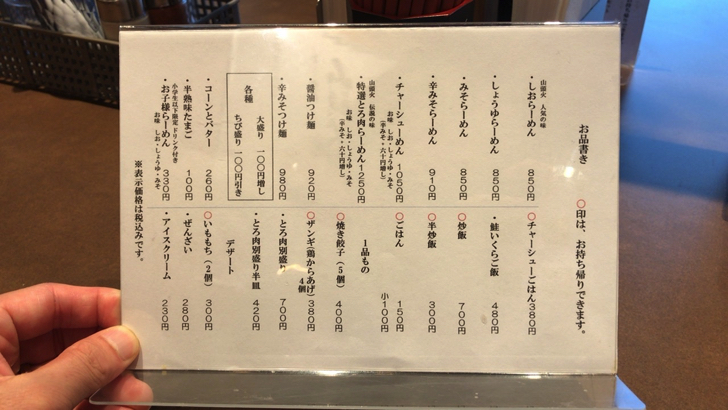 お品書き
○印は、お持ち帰りできます。
山頭火 人気の味
・しおらーめん 850円
・しょうゆらーめん 850円
・みそらーめん 850円
・辛みそらーめん 910円
・チャーシューめん 1050円
お味 しお・しょうゆ・みそ
(辛みそ・六十円増し)
山頭火 伝説の味
・特選とろ肉らーめん 1250円
お味 しお・しょうゆ・みそ
(辛みそ・六十円増し)
・醤油つけ麺 920円
・辛みそつけ麺 980円
各種
大盛り 一〇〇円増し
ちび盛り 一〇〇円引き
・コーンとバター 260円
・半熟味たまご 100円
小学生以下限定 ドリンク付き
・お子様らーめん 330円
お味 しお・しょうゆ・みそ
○チャーシューごはん 380円
・鮭いくらご飯 480円
○炒飯 700円
○半炒飯 300円
○ごはん 150円
小 100円
1品もの
○焼き餃子(5個) 400円
○ザンギ(鶏からあげ) 4個 380円
・とろ肉別盛り 700円
・とろ肉別盛り半皿 420円
デザート
○いももち(2個) 300円
・ぜんざい 280円
・アイスクリーム 230円
※表示価格は税込みです。